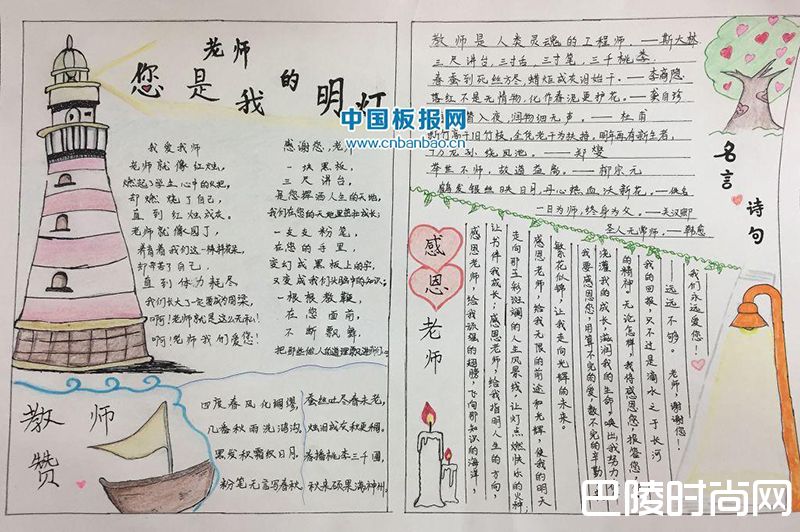 老师
您是我的明灯
中国板报网
www.cnbanbao.cn
我爱我师
老师就像红烛,
燃起学生心中的火把,
却燃烧了自己,
直到红烛成灰。
老师就像园丁,
养育着我们这一棵棵花朵,
却辛苦了自己,
直到体力耗尽
我们长大了一定要成为国梁,
啊!老师就是这么无私!
啊!老师我们爱您!
感谢您,老
一块黑板,
三尺讲台,
是您挥洒人生的天地,
我们在您的天地里茁壮成长;
一支支粉笔,
在您的手里,
变幻成黑板上的字,
又变成我们头脑中的知识;
一根根教鞭,
在您面前,
不断飘舞,
教师赞
四度春风化绸缪,
几番秋雨洗鸿沟,
黑发积霜织日月,
粉笔无言写春秋,
蚕丝吐尽春未老,
烛泪成灰秋更稠,
春播桃李三千圃,
秋来硕果满神州。
教师是人类灵魂的工程师。——斯大林
三尺讲台,三寸舌,三寸笔,三千桃李
春蚕到死丝方尽,蜡炬成灰泪始干。——李商隐
落红不是无情物,化作春泥更护花。——龚自珍
潜入夜,润物细无声。——杜甫
新竹高于旧竹枝,全凭老干为扶持,明年再有新生者,
十丈龙孙绕凤池。——郑燮
举世不师,故道益离。——柳宗元
鹤发银丝映日月,丹心热血沃新花。——佚名
一日为师,终身为父。——关汉卿
圣人无常师。——韩愈
名言诗句
感恩老师
我们永远爱您!
——远远不够。老师,谢谢您!
我的回报,只不过是滴水之于长河
的精神,无论怎样,我得感恩您,报答您,
浇灌我的成长,滋润我的生命,唤出我努力
我要感恩您,用算不完的爱,数不完的辛勤
繁花似锦,让我走向光辉的未来。
感恩老师,给我无限的前途和光辉,使我的明天
走向那五彩斑斓的人生风景线,让灯点燃快乐的火种
让书伴我成长;感恩老师,给我指明人生的方向,
感恩老师,给我顽强的翅膀,飞向那知识的海洋,
巴陵时尚网